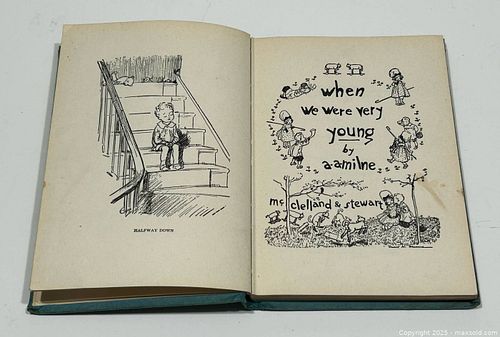 HALFWAY DOWN
when
we were very
young
by
a·a·milne
mc clelland & stewart
Copyright 2025 - maxsold.com